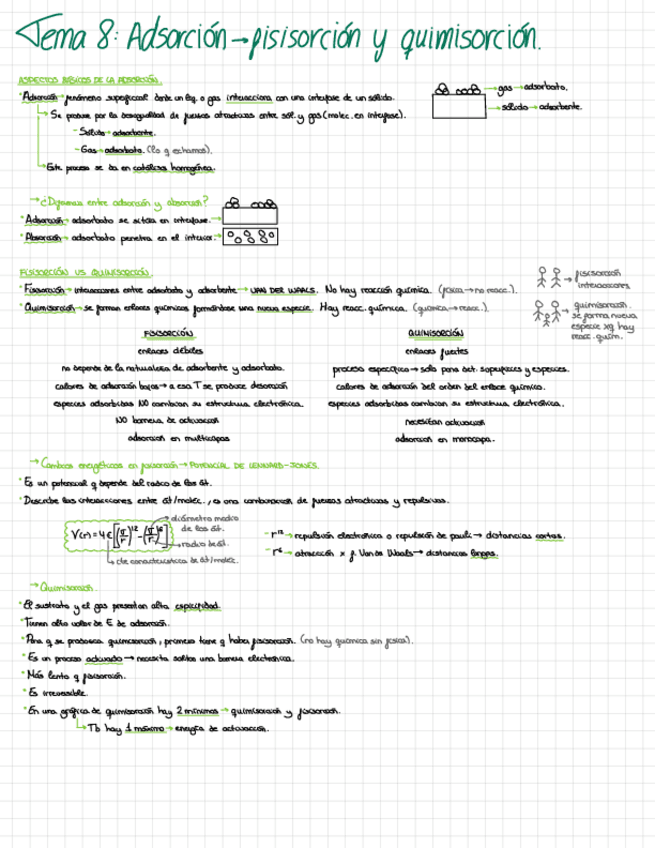 Tema 8: Adsorción→pisisorción y quimisorción.
ASPECTOS BÁSICOS DE LA ADSORCIÓN.
Adsorción→ fenómeno superficial donde un líq. o gas interacciona con una interfase de un sólido.
gas→adsorbato.
sólido→adsorbente.
Se produce por la desigualdad de fuerzas atractivas entre sól. y gas (molec. en interfase).
- Sólido→adsorbente.
- Gas→adsorbato. (lo q echamos).
Este proceso se da en catálisis homogénea.
→¿Diferencias entre adsorción y absorción?
Adsorción→ adsorbato se sitúa en interfase.
Absorción→ adsorbato penetra en el interior.
FISISORCIÓN VS QUIMISORCIÓN.
Fisisorción→ interacciones entre adsorbato y adsorbente→ VAN DER WAALS. No hay reacción química. (física→no reacc.).
Quimisorción→ se forman enlaces químicos formándose una nueva especie. Hay reacc. química. (química→reacc.).
→ pisisorción
interacciones
→ quimisorción.
se forma nueva
especie xq hay
reacc. quím.
FISISORCIÓN
enlaces débiles
no depende de la naturaleza de adsorbente y adsorbato.
calores de adsorción bajos→ a esa T se produce desorción
especies adsorbidas NO cambian su estructura electrónica.
NO barrera de activación
adsorción en multicapas
QUIMISORCIÓN
enlaces fuertes
proceso específico→ solo para det. superficies y especies.
calores de adsorción del orden del enlace químico.
especies adsorbidas cambian su estructura electrónica.
necesitan activación
adsorción en monocapa.
→Cambios energéticos en fisisorción→ POTENCIAL DE LENNARD-JONES.
Es un potencial q depende del radio de los át.
Describe las interacciones entre át/moléc., es una combinación de fuerzas atractivas y repulsivas.
V(r) = 4ε[(σ/r)¹² - (σ/r)⁶]
→diámetro medio
de los át.
→radio de át.
→cte característica de át/moléc.
- r¹²→ repulsión electrónica o repulsión de pauli→ distancias cortas.
- r⁶→ atracción x f. Van de Waals→ distancias largas.
→Quimisorción.
El sustrato y el gas presentan alta especificidad.
Tienen alto valor de E de adsorción.
Para q se produzca quimisorción, primero tiene q haber fisisorción. (no hay química sin física).
Es un proceso activado→ necesita saltar una barrera electrónica.
Más lento q fisisorción.
Es irreversible.
En una gráfica de quimisorción hay 2 mínimos→ quimisorción y fisisorción.
Tb hay 1 máximo→ energía de activación.